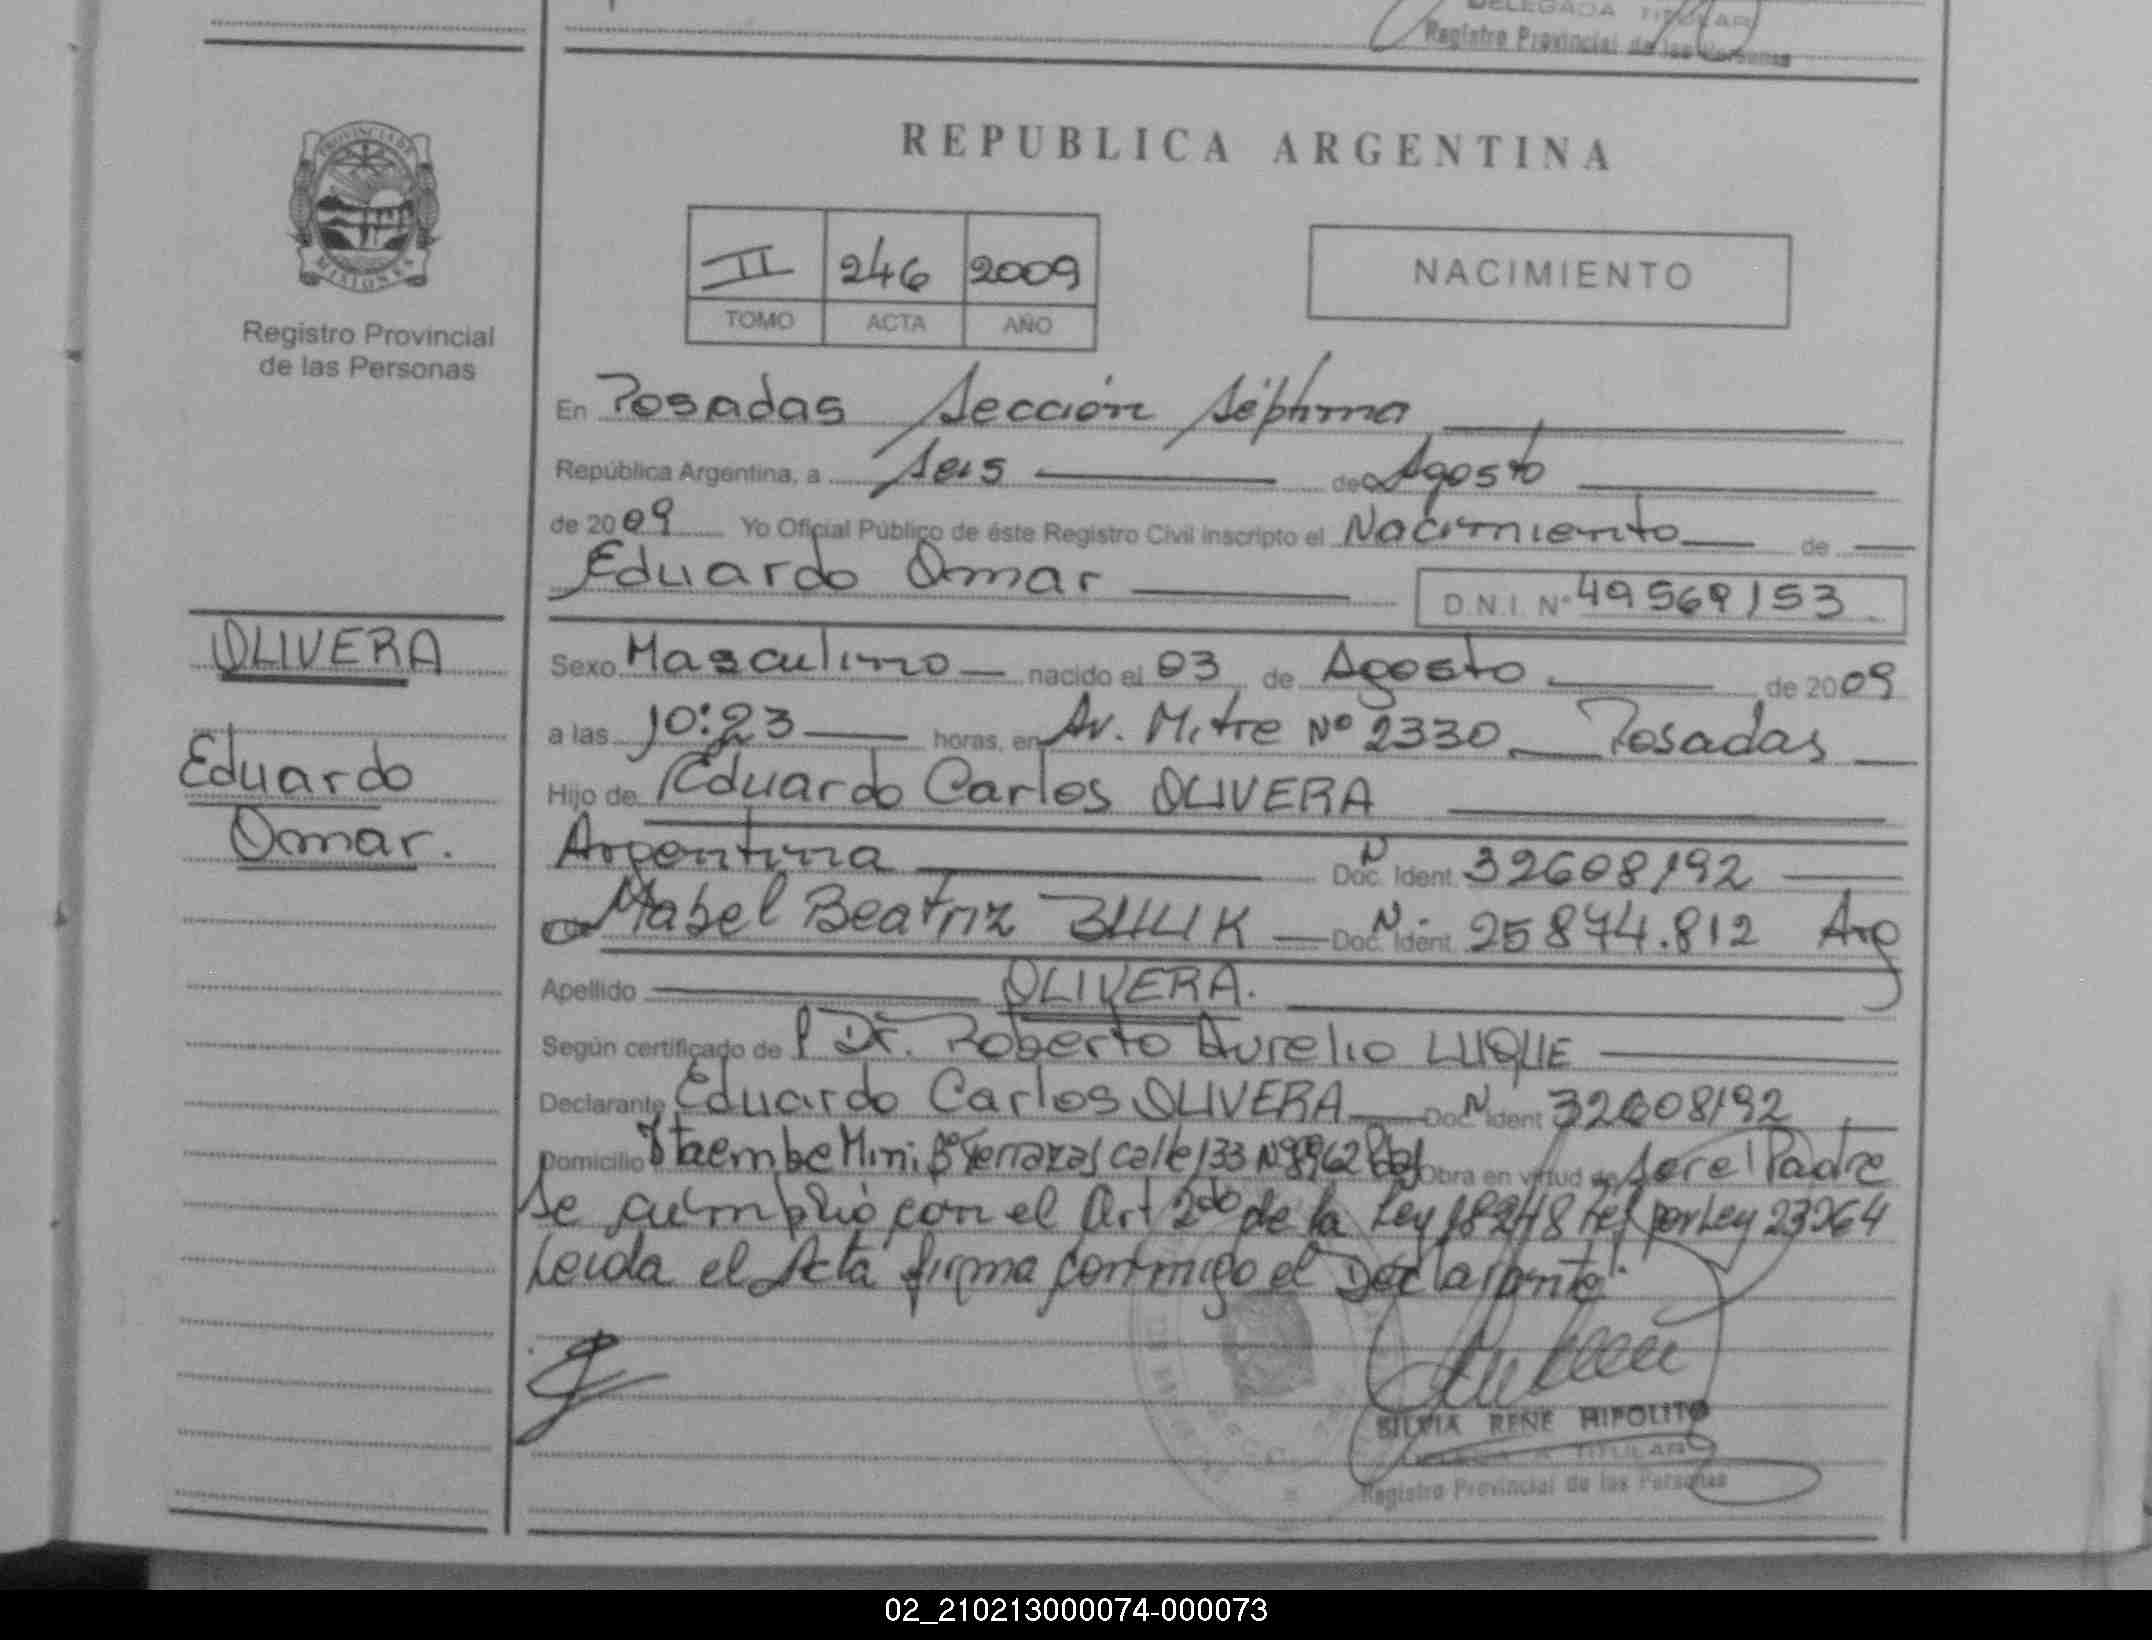 DELEGADA TITULAR
Registro Provincial de las Personas
PROVINCIA DE
MISIONES
Registro Provincial
de las Personas
REPUBLICA ARGENTINA
II 246 2009
TOMO ACTA AÑO
NACIMIENTO
En Posadas Sección Séptima
República Argentina, a Seis de Agosto
de 2009 Yo Oficial Público de éste Registro Civil inscripto el Nacimiento de
Eduardo Omar D.N.I. Nº 49569153
OLIVERA
Eduardo
Omar.
Sexo Masculino nacido el 03 de Agosto de 2009
a las 10:23 horas, en Av. Mitre Nº 2330 Posadas
Hijo de Eduardo Carlos OLIVERA
Argentina Doc. N Ident. 32608192
Mabel Beatriz Doc. N Ident. 25874.812 Arg
Apellido OLIVERA.
Según certificado de Dr. Roberto Aurelio LUQUE
Declarante Eduardo Carlos OLIVERA Doc. N Ident 32608192
Domicilio Itaembe Mini Bº Terrazas calle 133 Nº 8962 Pdas Obra en virtud de Ser el Padre
Se cumplió con el Art 2do de la Ley 18248 ref por Ley 23264
Leida el Acta firma conmigo el Declarante
SILVIA RENE HIPOLITO
TITULAR
Registro Provincial de las Personas
02_210213000074-000073